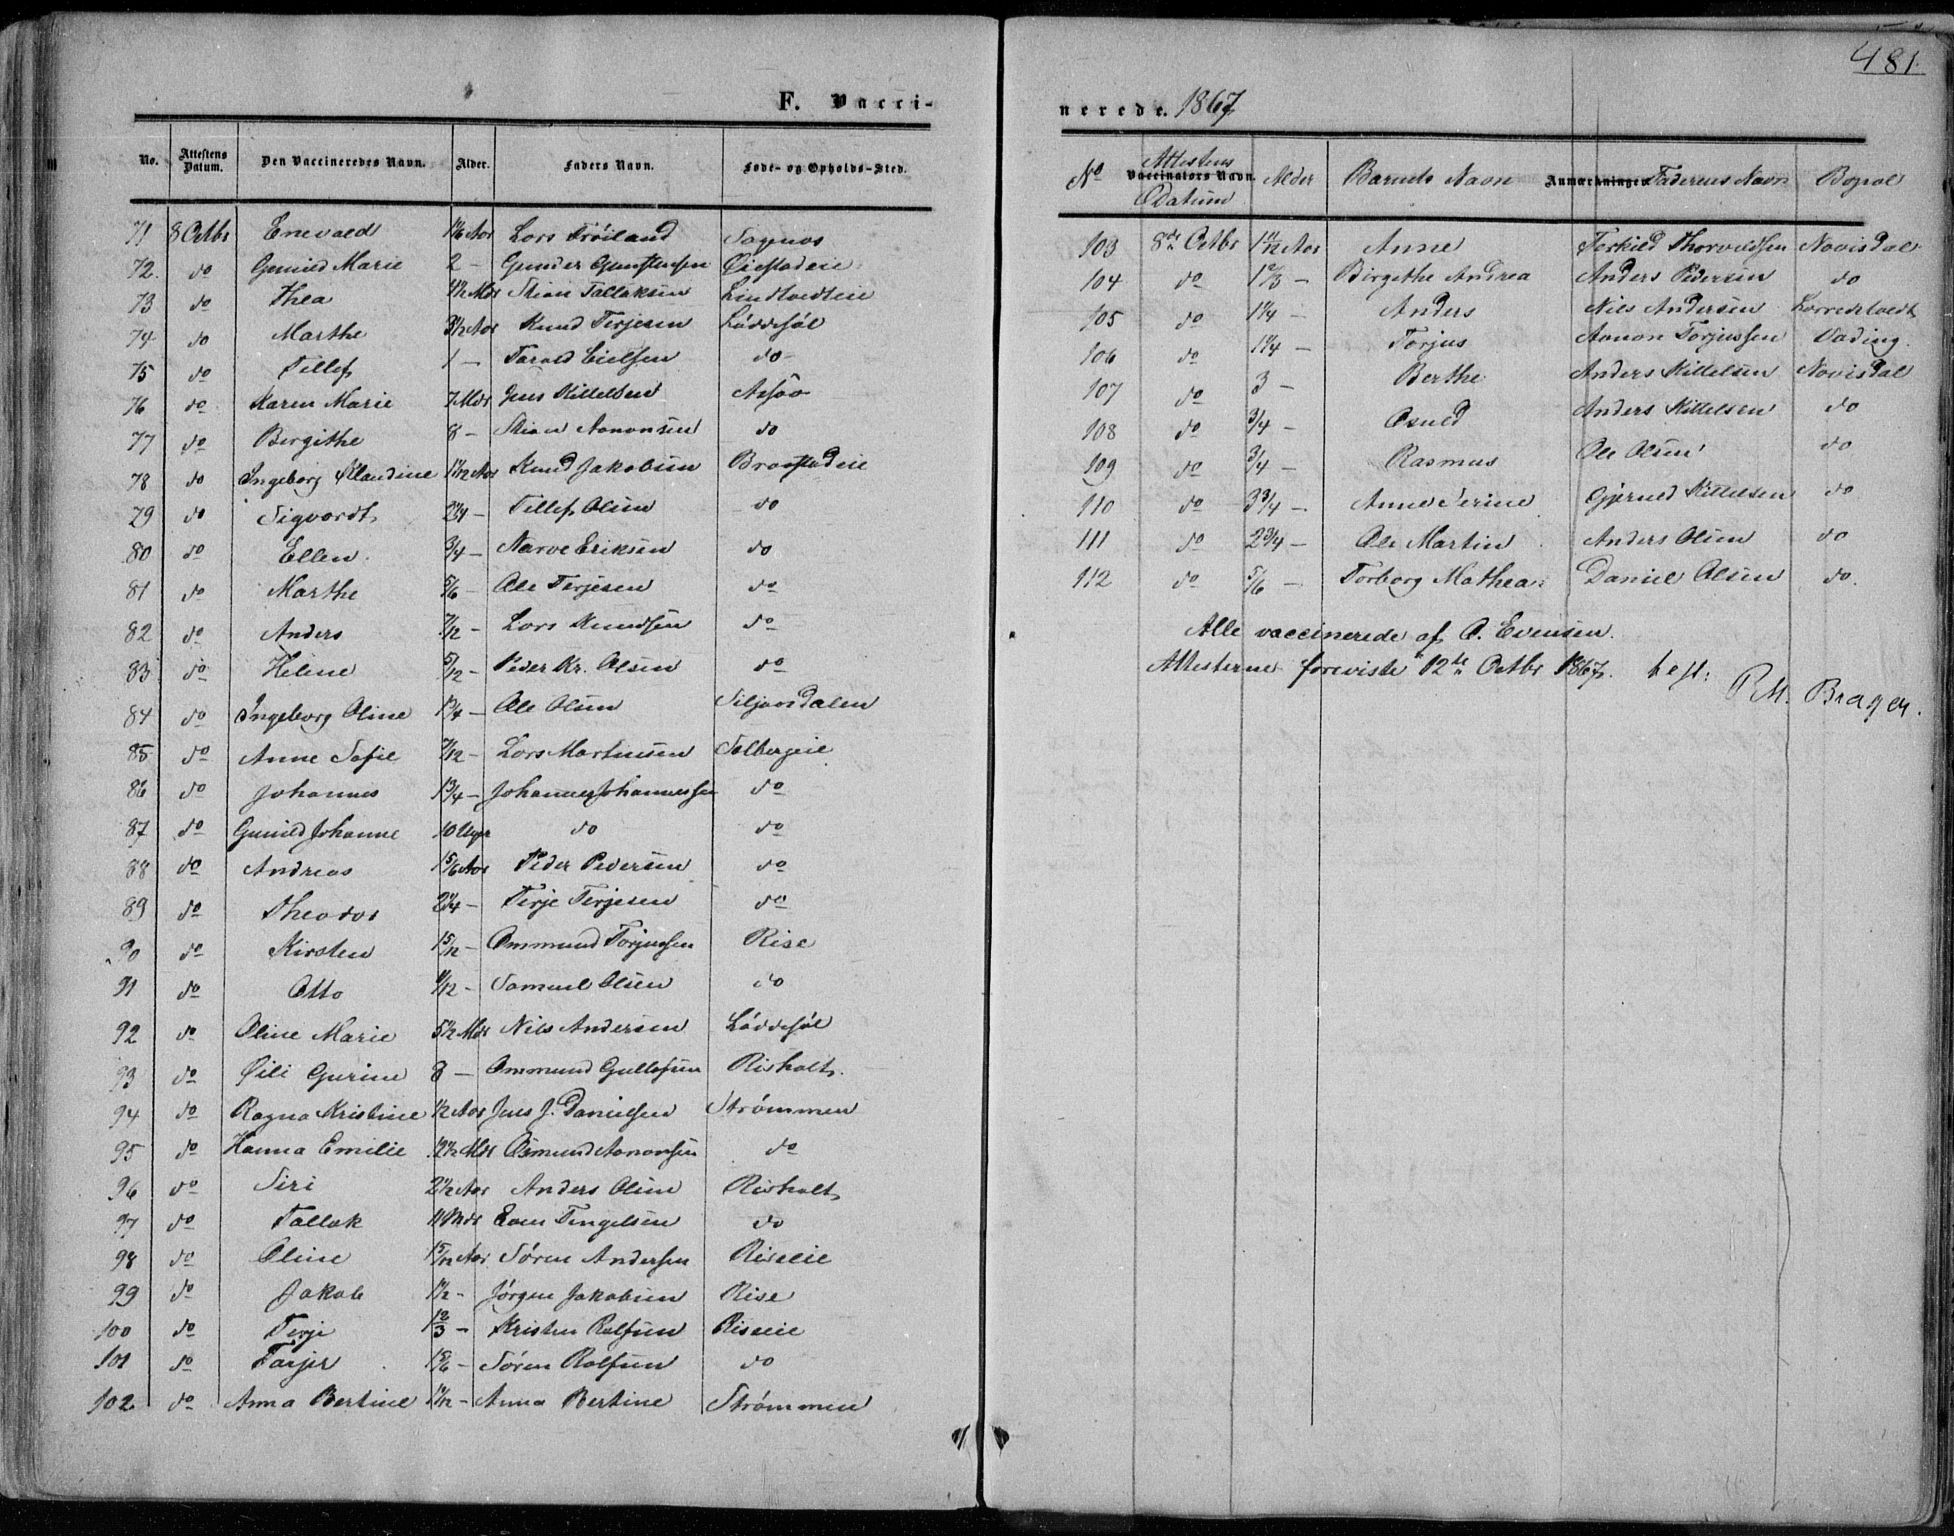 481
F. Vacci-
nerede. 1867
No. Attestens Datum. Den Vaccineredes Navn. Alder. Faders Navn. Føde- og Opholds-Sted.
71 8 Octbr Enevald 1 1/6 Aar Lars Frøiland Sagenes
72. do Gunild Marie 2 - Gunder Gunstensen Øiestadeie
73 do Thea 4 1/2 Mdr Stian Tallaksen Lindtvedteie
74 do Marthe 3 1/2 Aar Knud Terjesen Løddesøl
75 do Tellef 1 - Tarald Eielsen do
76 do Karen Marie 7 Mdr Jens Kittelsen Assøe
77 do Bergithe 8 - Stian Aanonsen do
78 do Ingeborg Klaudine 1 1/2 Aar Knud Jakobsen Braastadeie
79 do Sigvardt 2 1/4 - Tellef Olsen do
80 do Ellen 3/4 - Narve Eriksen do
81 do Marthe 5/6 - Ole Terjesen do
82 do Anders 7/12 - Lars Knudsen do
83 do Helene 5/12 - Peder Kr. Olsen do
84 do Ingeborg Oline 1 3/4 - Ole Olsen Siljansdalen
85 do Anne Sofie 7/12 - Lars Martinsen Solbergeie
86 do Johannes 1 3/4 - Johannes Johannessen do
87 do Gunild Johanne 10 Uger do do
88 do Andreas 1 5/6 Aar Peder Pedersen do
89 do Theodor 2 1/4 - Terje Terjesen do
90 do Kirsten 1 5/12 - Ommund Torjussen Rise
91 do Otto 11/12 - Samuel Olsen do
92 do Oline Marie 5 1/2 Mdr Nils Andersen Løddesøl
93 do Øili Gurine 8 - Ommund Gullefsen Risholt
94 do Ragna Kristine 1/2 Aar Jens J. Danielsen Strømmen
95 do Hanna Emilie 2 1/2 Mdr Osmund Aanonsen do
96 do Siri 2 1/2 Aar Anders Olsen Risholt
97 do Tallak 11 Mdr Even Tengelsen do
98 do Oline 1 5/12 Aar Søren Andersen Riseeie
99 do Jakob 1 1/2 - Jørgen Jakobsen Rise
100 do Terje 1 2/3 - Kristen Rolfsen Riseeie
101 do Tarjer 1 5/6 - Søren Rolfsen do
102 do Anna Bertine 1 1/12 - Anna Bertine Strømmen
No Attestens Vaccinators Navn. Datum Alder Barnets Navn Anmærkninger Faderens Navn Bopæl
103 8de Octbr 1 11/12 Aar Anne Terkild Thorvaldsen Navisdal
104 do 1 2/3 - Birgithe Andrea Anders Pedersen do
105 do 1 1/4 - Anders Nils Andersen
106 do 1 1/4 - Torjus Aanon Torjussen Vading.
107 do 3 - Berthe Anders Kittelsen Navisdal
108 do 3/4 - Osuld Anders Kittelsen do
109 do 3/4 - Rasmus Ole Olsen do
110 do 3 3/4 - Anne Serine Gjeruld Kittelsen do
111 do 2 3/4 - Ole Martin Anders Olsen do
112 do 5/6 - Torborg Mathea Daniel Olsen do.
Alle vaccinerede af O. Evensen.
Attesterne foreviste 12te Octbr 1867. test:
P.M. Brager.